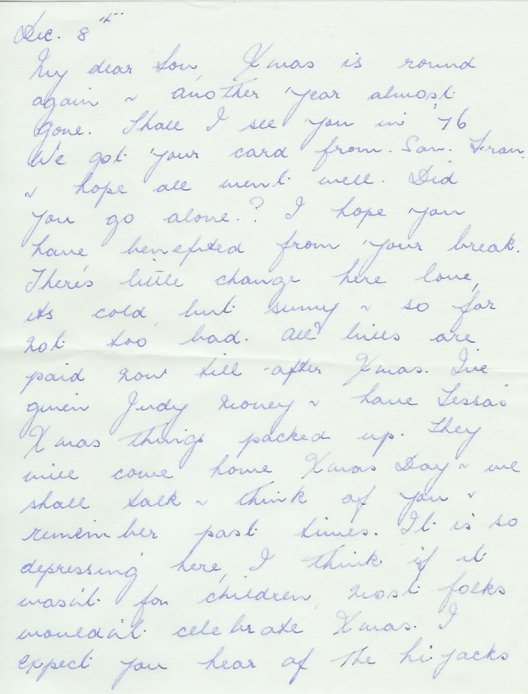 Dec. 8th
My dear Son, Xmas is round
again & another year almost
gone. Shall I see you in '76
We got your card from San. Fran.
& hope all went well. Did
you go alone.? I hope you
have benefited from your break.
There's little change here love,
its cold but sunny & so far
not too bad. All bills are
paid now till after Xmas. I've
given Judy money & have Tessa's
Xmas things packed up. They
will come home Xmas Day & we
shall talk & think of you &
remember past times. It is so
depressing here, I think if it
wasn't for children, most folks
wouldn't celebrate Xmas. I
expect you hear of the hijacks